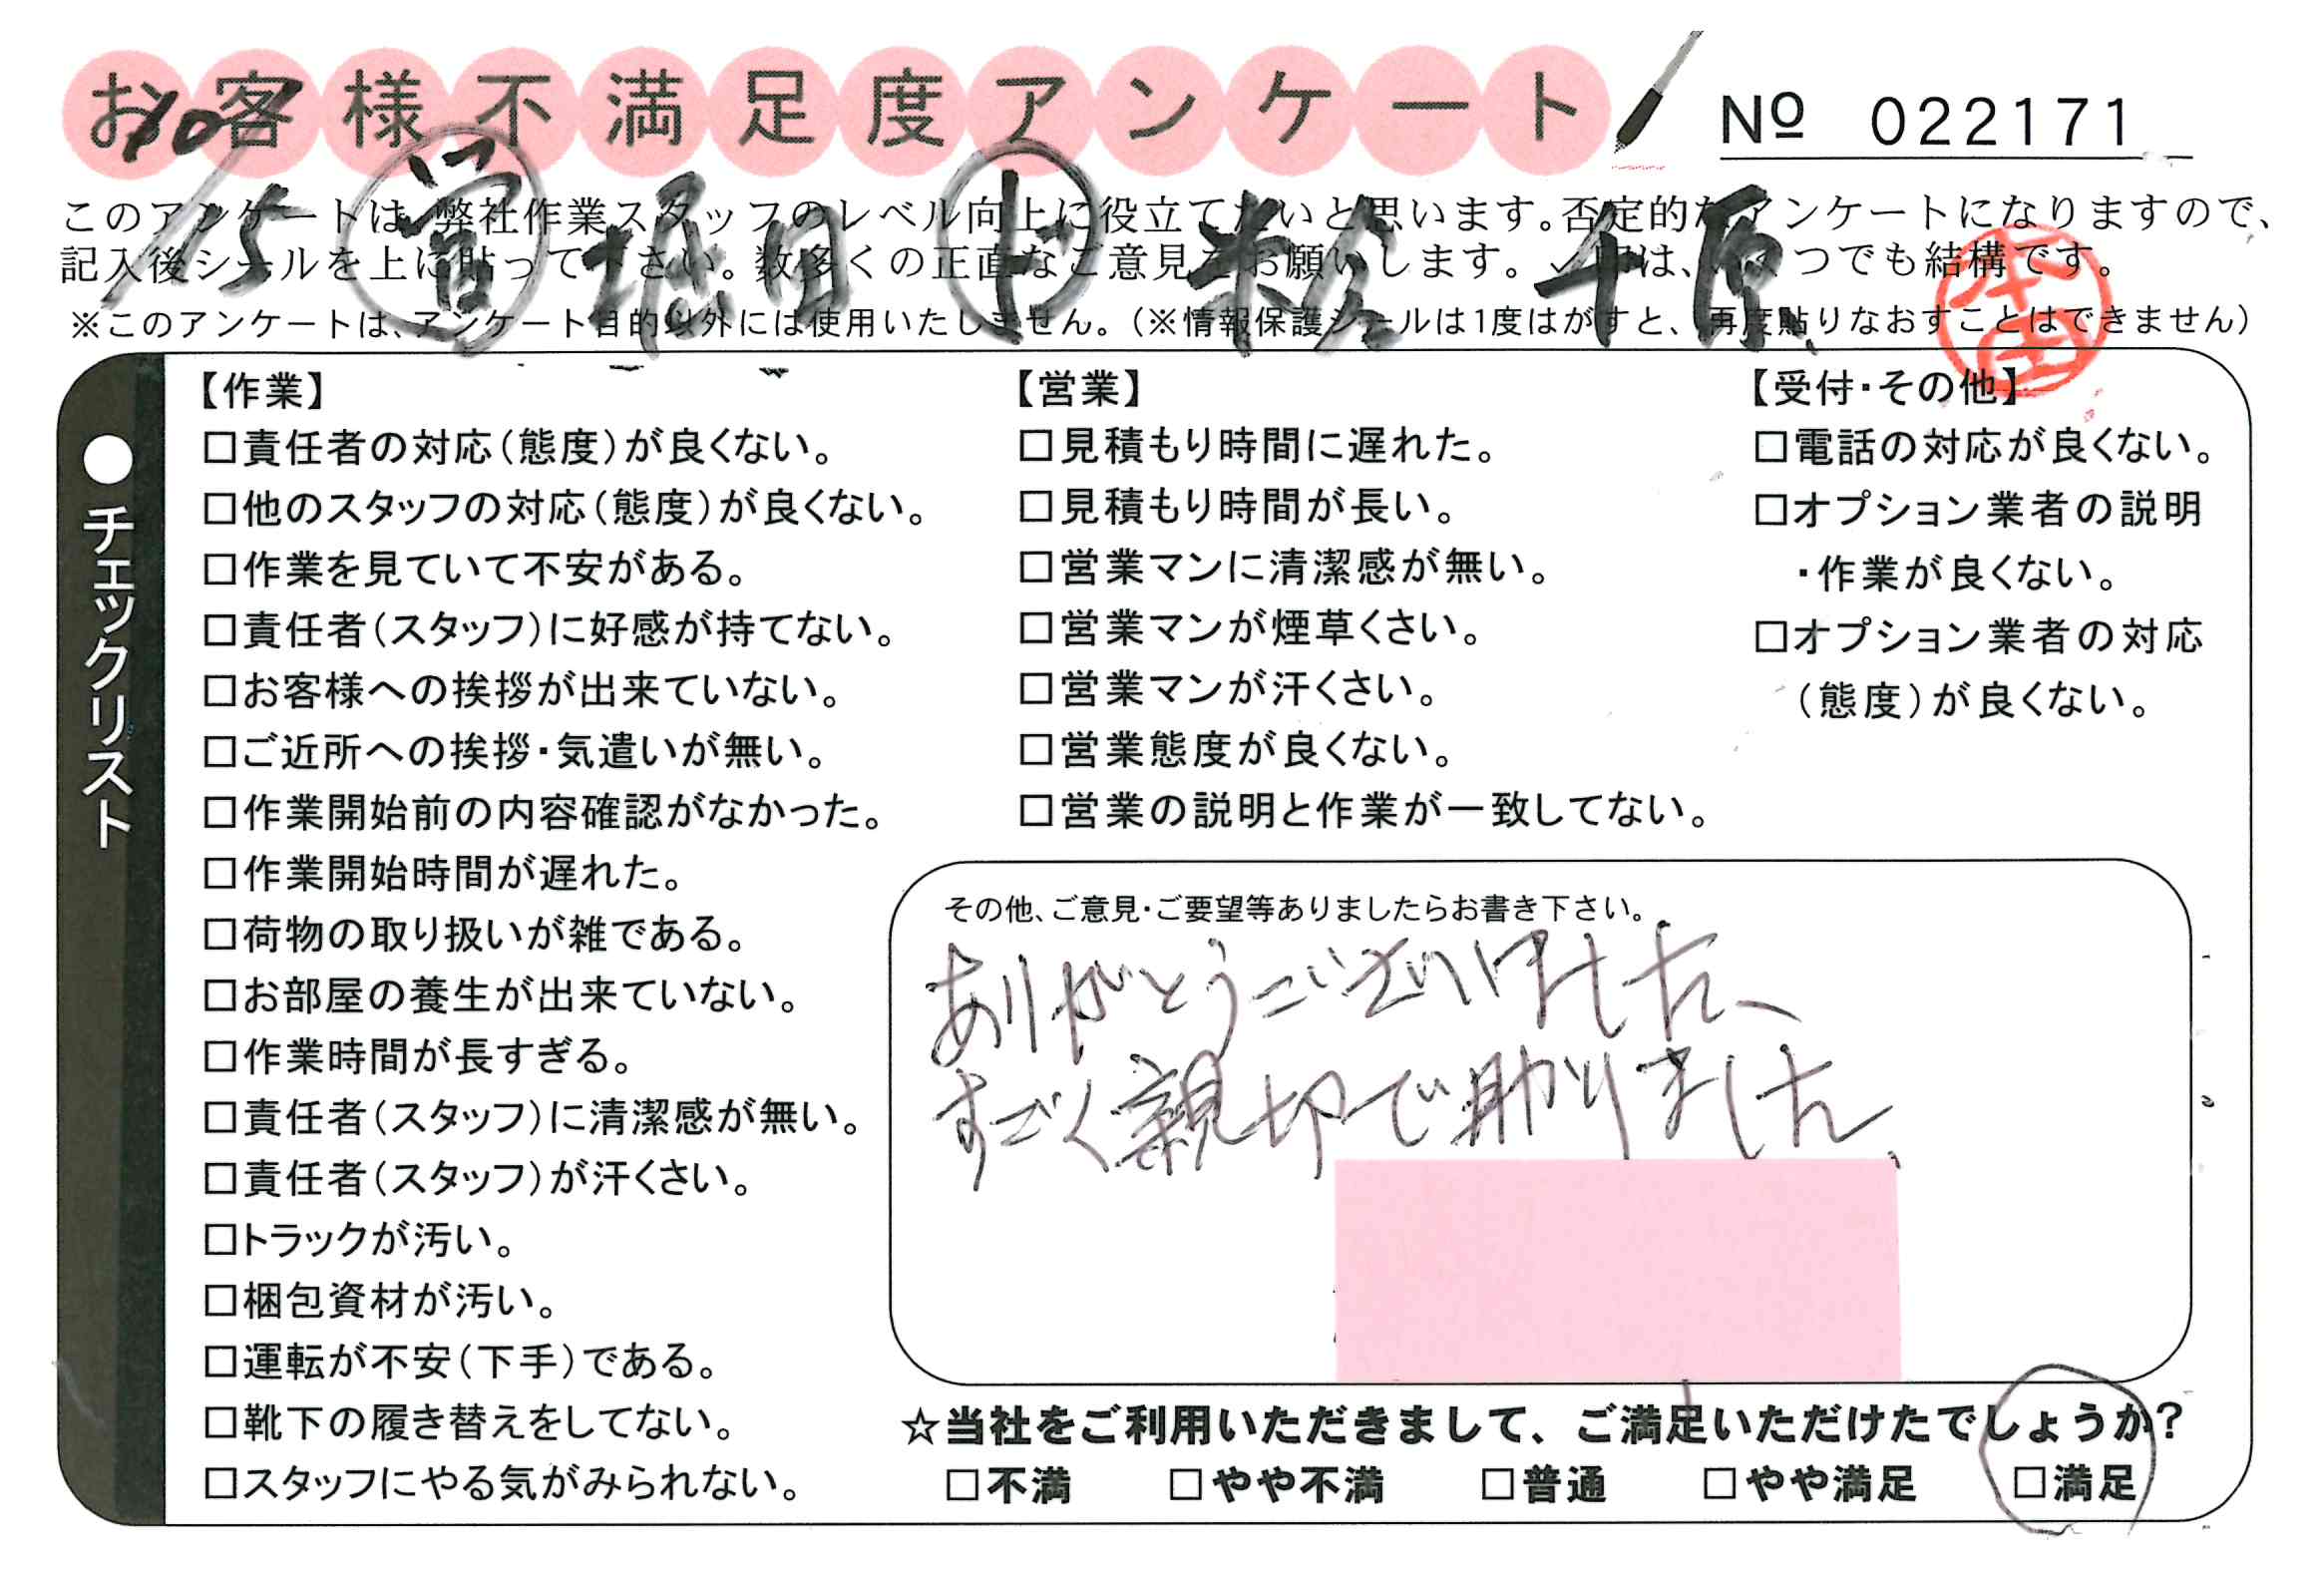 お客様不満足度アンケート
№ 022171
10/15 営 堀田 上 米倉 千原
このアンケートは、弊社作業スタッフのレベル向上に役立てたいと思います。否定的なアンケートになりますので、
記入後シールを上に貼って下さい。数多くの正直なご意見をお願いします。✓印は、いくつでも結構です。
※このアンケートは、アンケート目的以外には使用いたしません。(※情報保護シールは1度はがすと、再度貼りなおすことはできません)
●チェックリスト
【作業】
□責任者の対応(態度)が良くない。
□他のスタッフの対応(態度)が良くない。
□作業を見ていて不安がある。
□責任者(スタッフ)に好感が持てない。
□お客様への挨拶が出来ていない。
□ご近所への挨拶・気遣いが無い。
□作業開始前の内容確認がなかった。
□作業開始時間が遅れた。
□荷物の取り扱いが雑である。
□お部屋の養生が出来ていない。
□作業時間が長すぎる。
□責任者(スタッフ)に清潔感が無い。
□責任者(スタッフ)が汗くさい。
□トラックが汚い。
□梱包資材が汚い。
□運転が不安(下手)である。
□靴下の履き替えをしてない。
□スタッフにやる気がみられない。
【営業】
□見積もり時間に遅れた。
□見積もり時間が長い。
□営業マンに清潔感が無い。
□営業マンが煙草くさい。
□営業マンが汗くさい。
□営業態度が良くない。
□営業の説明と作業が一致してない。
【受付・その他】
□電話の対応が良くない。
□オプション業者の説明
・作業が良くない。
□オプション業者の対応
(態度)が良くない。
その他、ご意見・ご要望等ありましたらお書き下さい。
ありがとうございました、
すごく親切で助かりました、
☆当社をご利用いただきまして、ご満足いただけたでしょうか?
□不満 □やや不満 □普通 □やや満足 □満足